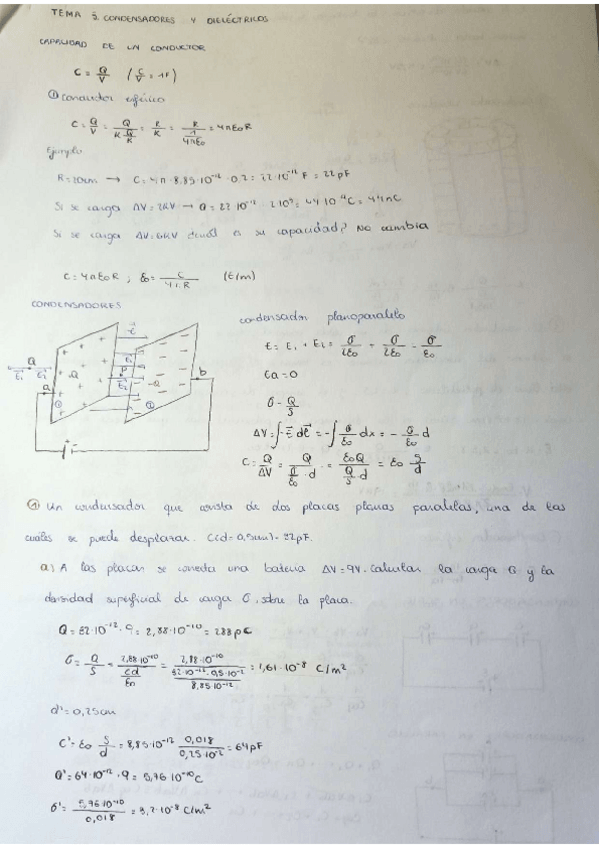 TEMA 5. CONDENSADORES Y DIELÉCTRICOS
CAPACIDAD DE UN CONDUCTOR
C = Q/V (C/V = 1F)
① Conductor esférico
C = Q/V = Q/(K Q/R) = R/K = R/(1/4πε0) = 4πε0R
Ejemplo
R = 20cm → C = 4π · 8,85·10⁻¹² · 0,2 = 22·10⁻¹² F = 22 pF
Si se carga ΔV = 2KV → Q = 22·10⁻¹² · 2·10³ = 44·10⁻¹² C = 44nC
Si se carga ΔV = 6KV es su capacidad? No cambia
C = 4πε0R ; ε0 = C/4πR (F/m)
CONDENSADORES
condensador planoparalelo
E = E₁ + E₂ = σ/2ε0 + σ/2ε0 = σ/ε0
Ea = 0
σ = Q/S
ΔV = ∫-E dl = -∫ σ/ε0 dx = - σ/ε0 d
C = Q/ΔV = Q/(σ/ε0 · d) = ε0Q/(Q/S d) = ε0 S/d
Q
a
b
P
-Q
① Un condensador que consta de dos placas planas paralelas, una de las
cuales se puede desplazar. C(d = 0,5cm) = 32pF.
a) A las placas se conecta una batería ΔV = 9V. Calcular la carga Q y la
densidad superficial de carga σ, sobre la placa.
Q = 32·10⁻¹² · 9 = 2,88·10⁻¹⁰ = 288 pC
σ = Q/S = 2,88·10⁻¹⁰/(Cd/ε0) = 2,88·10⁻¹⁰/(32·10⁻¹² · 0,5·10⁻²/8,85·10⁻¹²) = 1,61·10⁻⁸ C/m²
d' = 0,25cm
C' = ε0 S/d = 8,85·10⁻¹² 0,018/0,25·10⁻² = 64pF
Q' = 64·10⁻¹² · 9 = 5,76·10⁻¹⁰ C
σ' = 5,76·10⁻¹⁰/0,018 = 3,2·10⁻⁸ C/m²